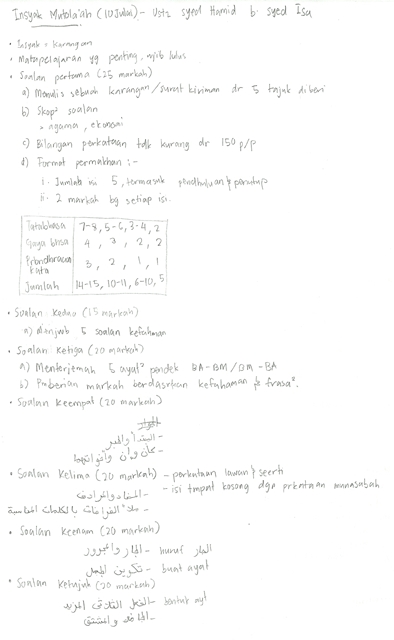 Insyak Mutola'ah (10 Julai) - Ustz Syed Hamid b. Syed Isa
• Insyak = karangan
• Matapelajaran yg penting, wjib lulus
• Soalan pertama (25 markah)
a) Menulis sebuah karangan/surat kiriman dr 5 tajuk diberi
b) Skop² soalan
> agama, ekonomi
c) Bilangan perkataan tdk kurang dr 150 p/p
d) Format permakhan :-
i. Jumlah isi 5, termasuk pendhuluan & penutup
ii. 2 markah bg setiap isi.
Tatabhasa 7-8, 5-6, 3-4, 2
Gaya bhsa 4, 3, 2, 2
kata 3, 2, 1, 1
Jumlah 14-15, 10-11, 6-10, 5
• Soalan Kedua (15 markah)
a) Menjwb 5 soalan kefahaman
• Soalan Ketiga (20 markah)
a) Menterjemah 5 ayat² pendek BA-BM/BM-BA
b) Pemberian markah berdasrkan kefahaman & frasa².
• Soalan Keempat (20 markah)
- المبتدأ والخبر
- كان وإن وأخواتهما
• Soalan Kelima (20 markah) - perkataan lawan & seerti
- isi tmpat kosong dgn prkataan munasabah
- المضاد والمرادف
- ملأ الفراغات بالكلمات المناسبة
• Soalan Keenam (20 markah)
الجار والمجرور - huruf الجار
تكوين الجمل - buat ayat
• Soalan Ketujuh (20 markah)
- الفعل الثلاثي المزيد - bentuk ayt
- الجامد والمشتق